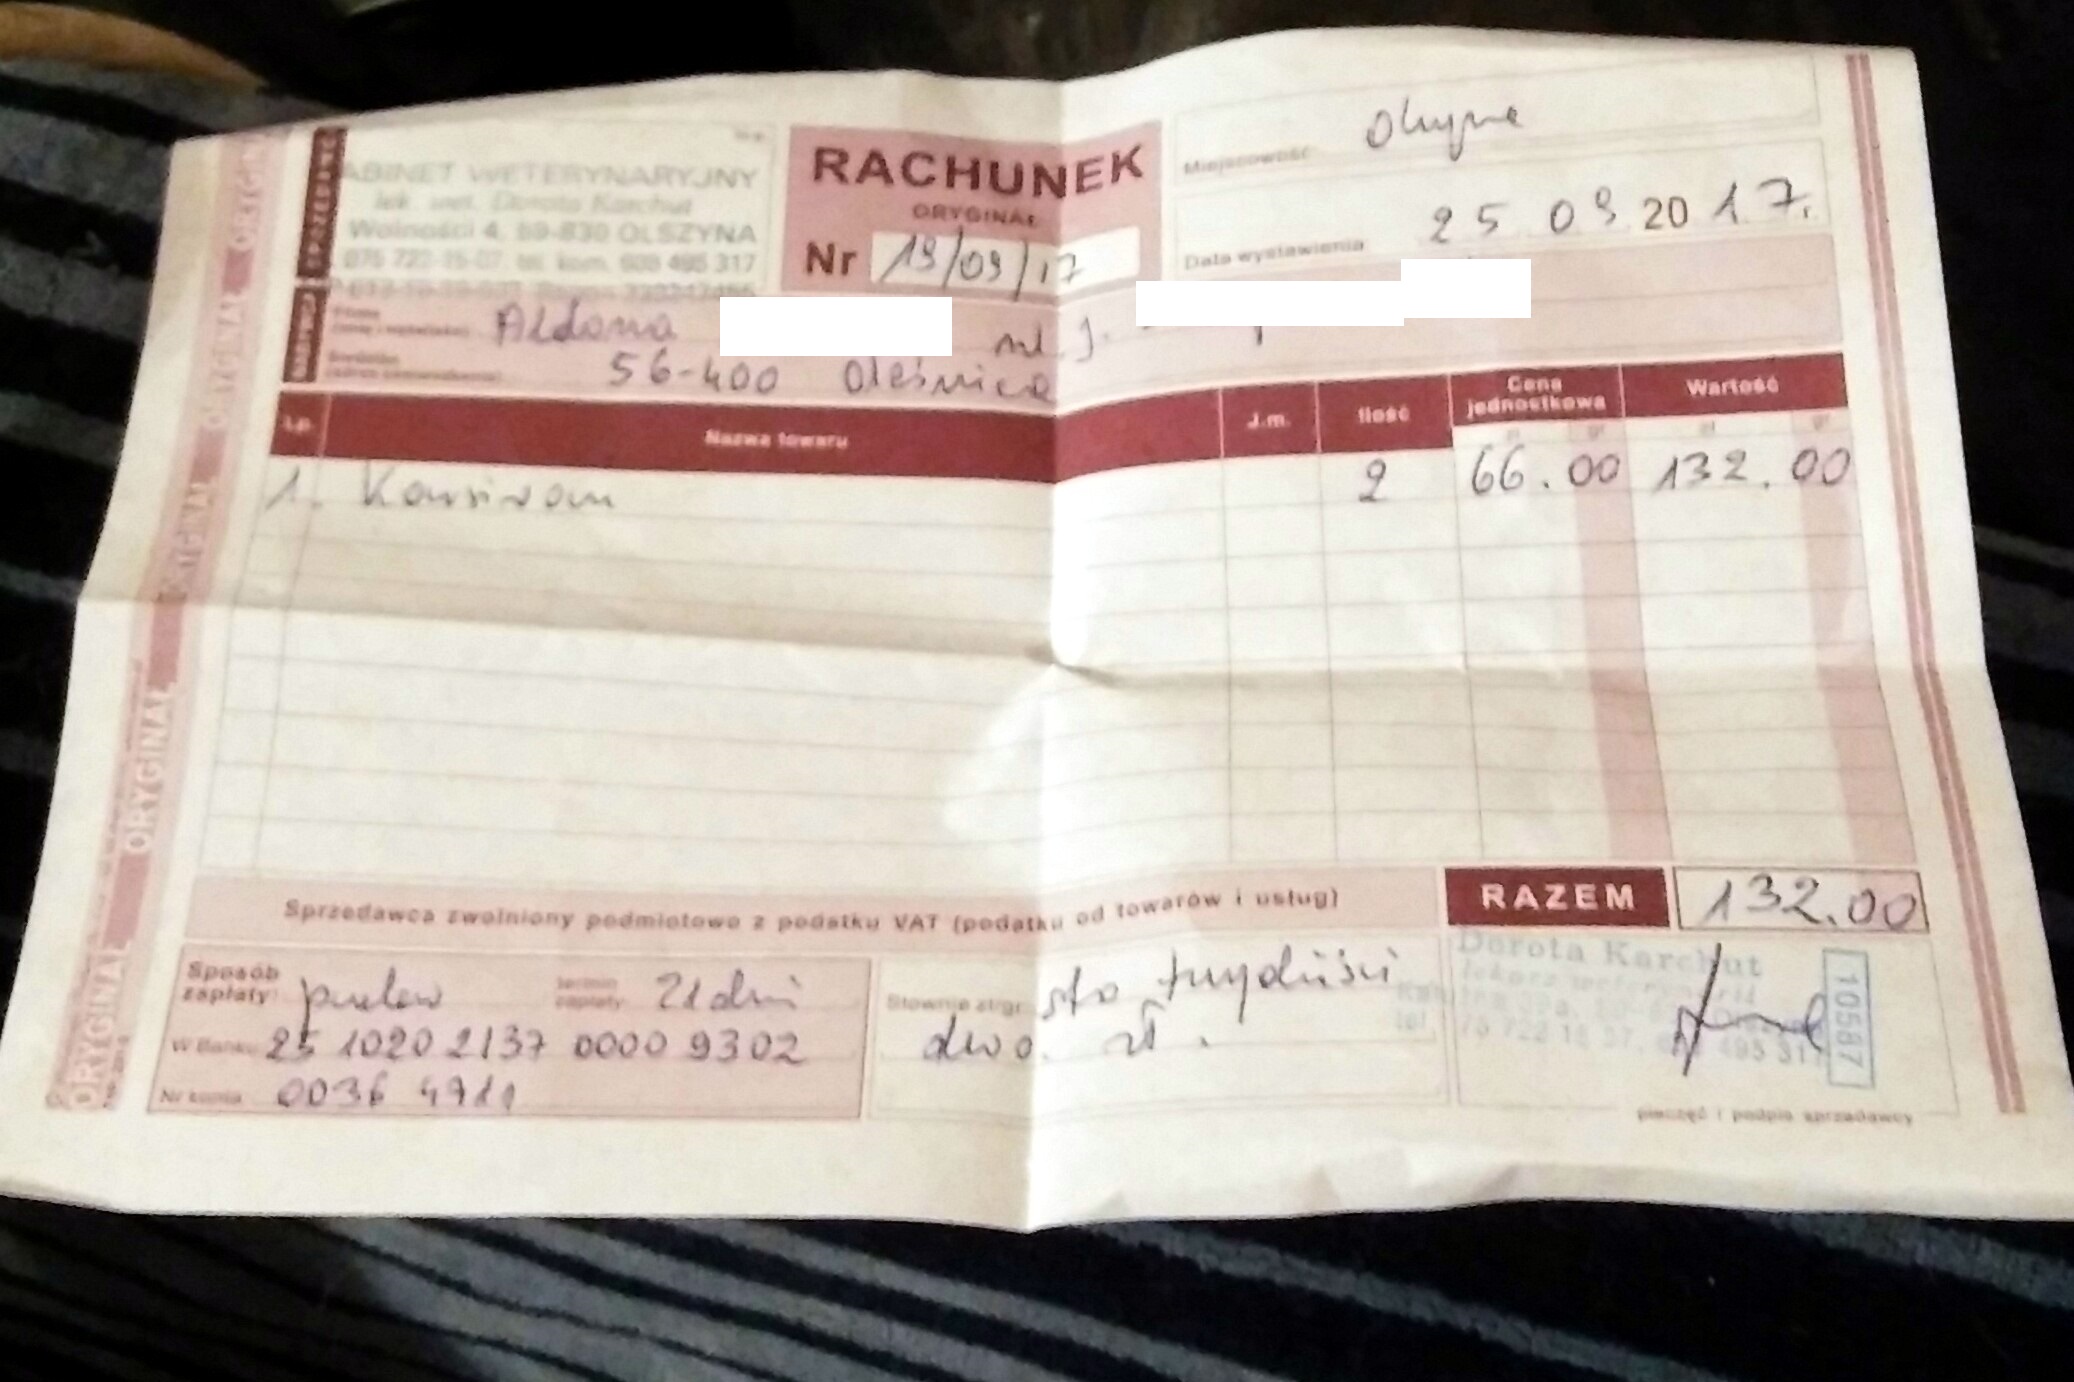 SPRZEDAWCA
GABINET WETERYNARYJNY
lek. wet. Dorota Karchut
Wolności 4, 59-830 OLSZYNA
075 722-15-07, tel. kom. 495 317
RACHUNEK
ORYGINAŁ
Nr 19/09/17
Miejscowość Olszyna
Data wystawienia 25 09 2017r.
NABYWCA
Aldona ul. J.
56-400 Oleśnica
Lp. Nazwa towaru J.m. Ilość Cena jednostkowa Wartość
zł gr zł gr
1. 2 66.00 132.00
Sprzedawca zwolniony podmiotowo z podatku VAT (podatku od towarów i usług)
RAZEM 132.00
Sposób zapłaty: przelew termin zapłaty: 21 dni
W Banku 25 1020 2137 0000 9302
Nr konta 0036 4911
Słownie zł/gr. sto trzydzieści
dwa zł.
Dorota Karchut
lekarz weterynarii
10587
pieczęć i podpis sprzedawcy
ORYGINAŁ ORYGINAŁ ORYGINAŁ ORYGINAŁ ORYGINAŁ ORYGINAŁ